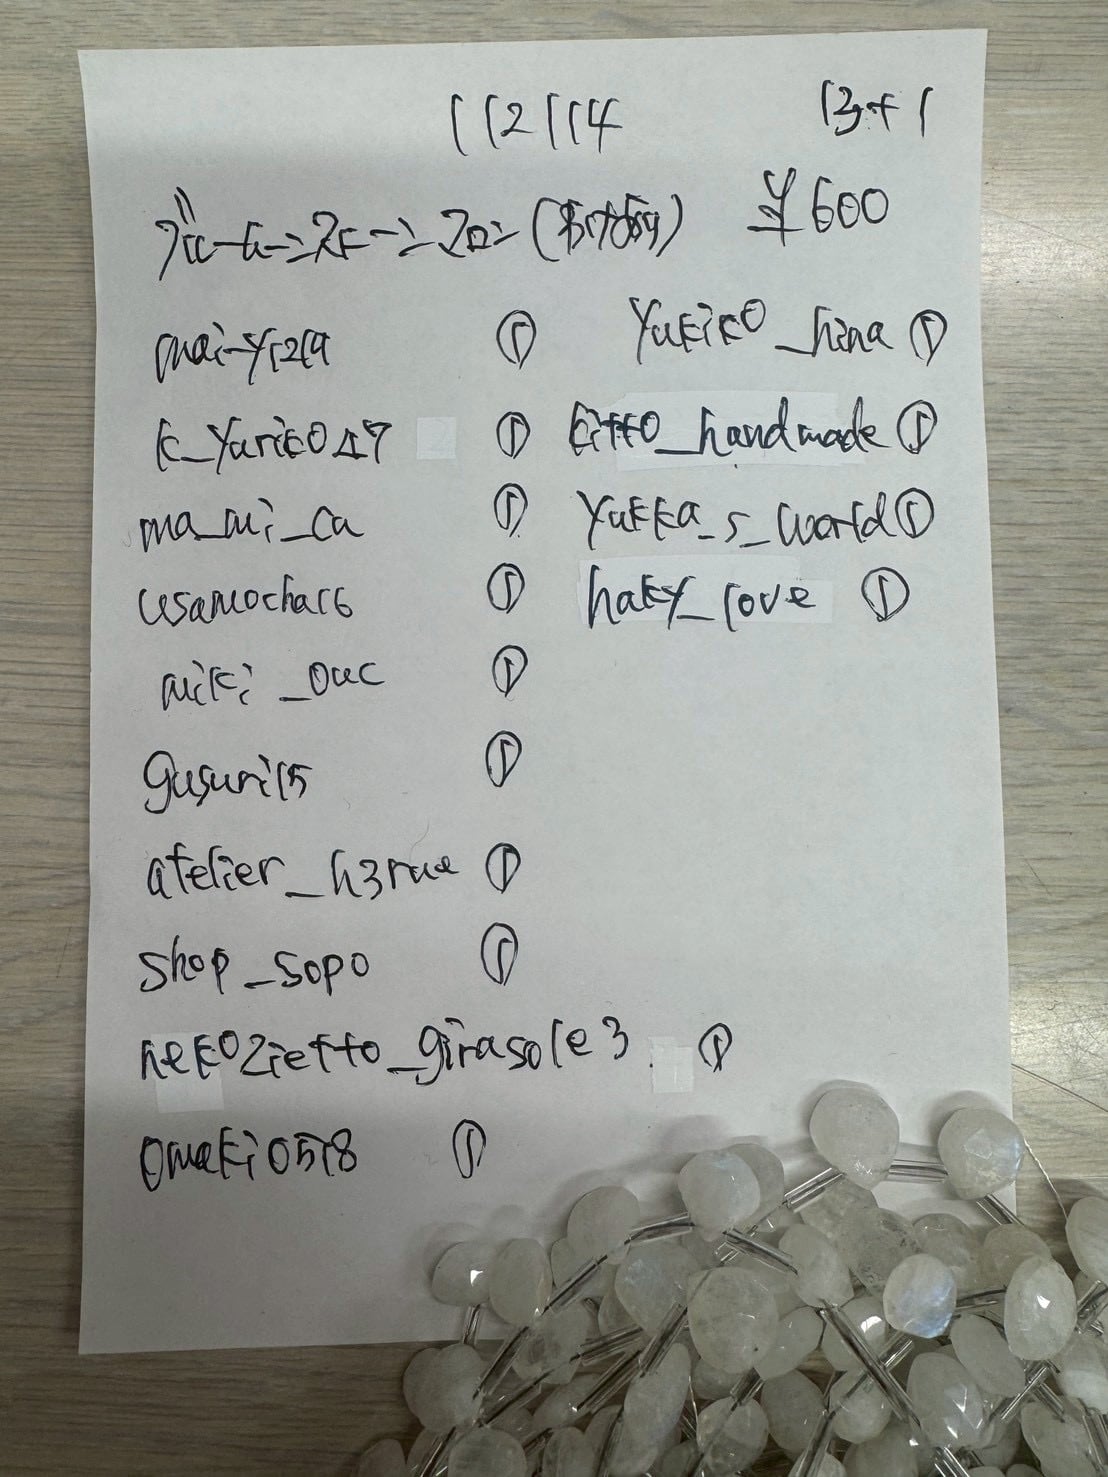 112114 13+1
ブルームーンストーン ¥600
mai-yi219 ①
k_yuriko47 ①
ma_mi_ca ①
usamocha16 ①
miki_ouc ①
gusuri15 ①
atelier_h3rue ①
shop_sopo ①
nekozietto_girasole3 ①
omaki0518 ①
yukiko_hina ①
kitto_handmade ①
yukka_s_world ①
haky_love ①